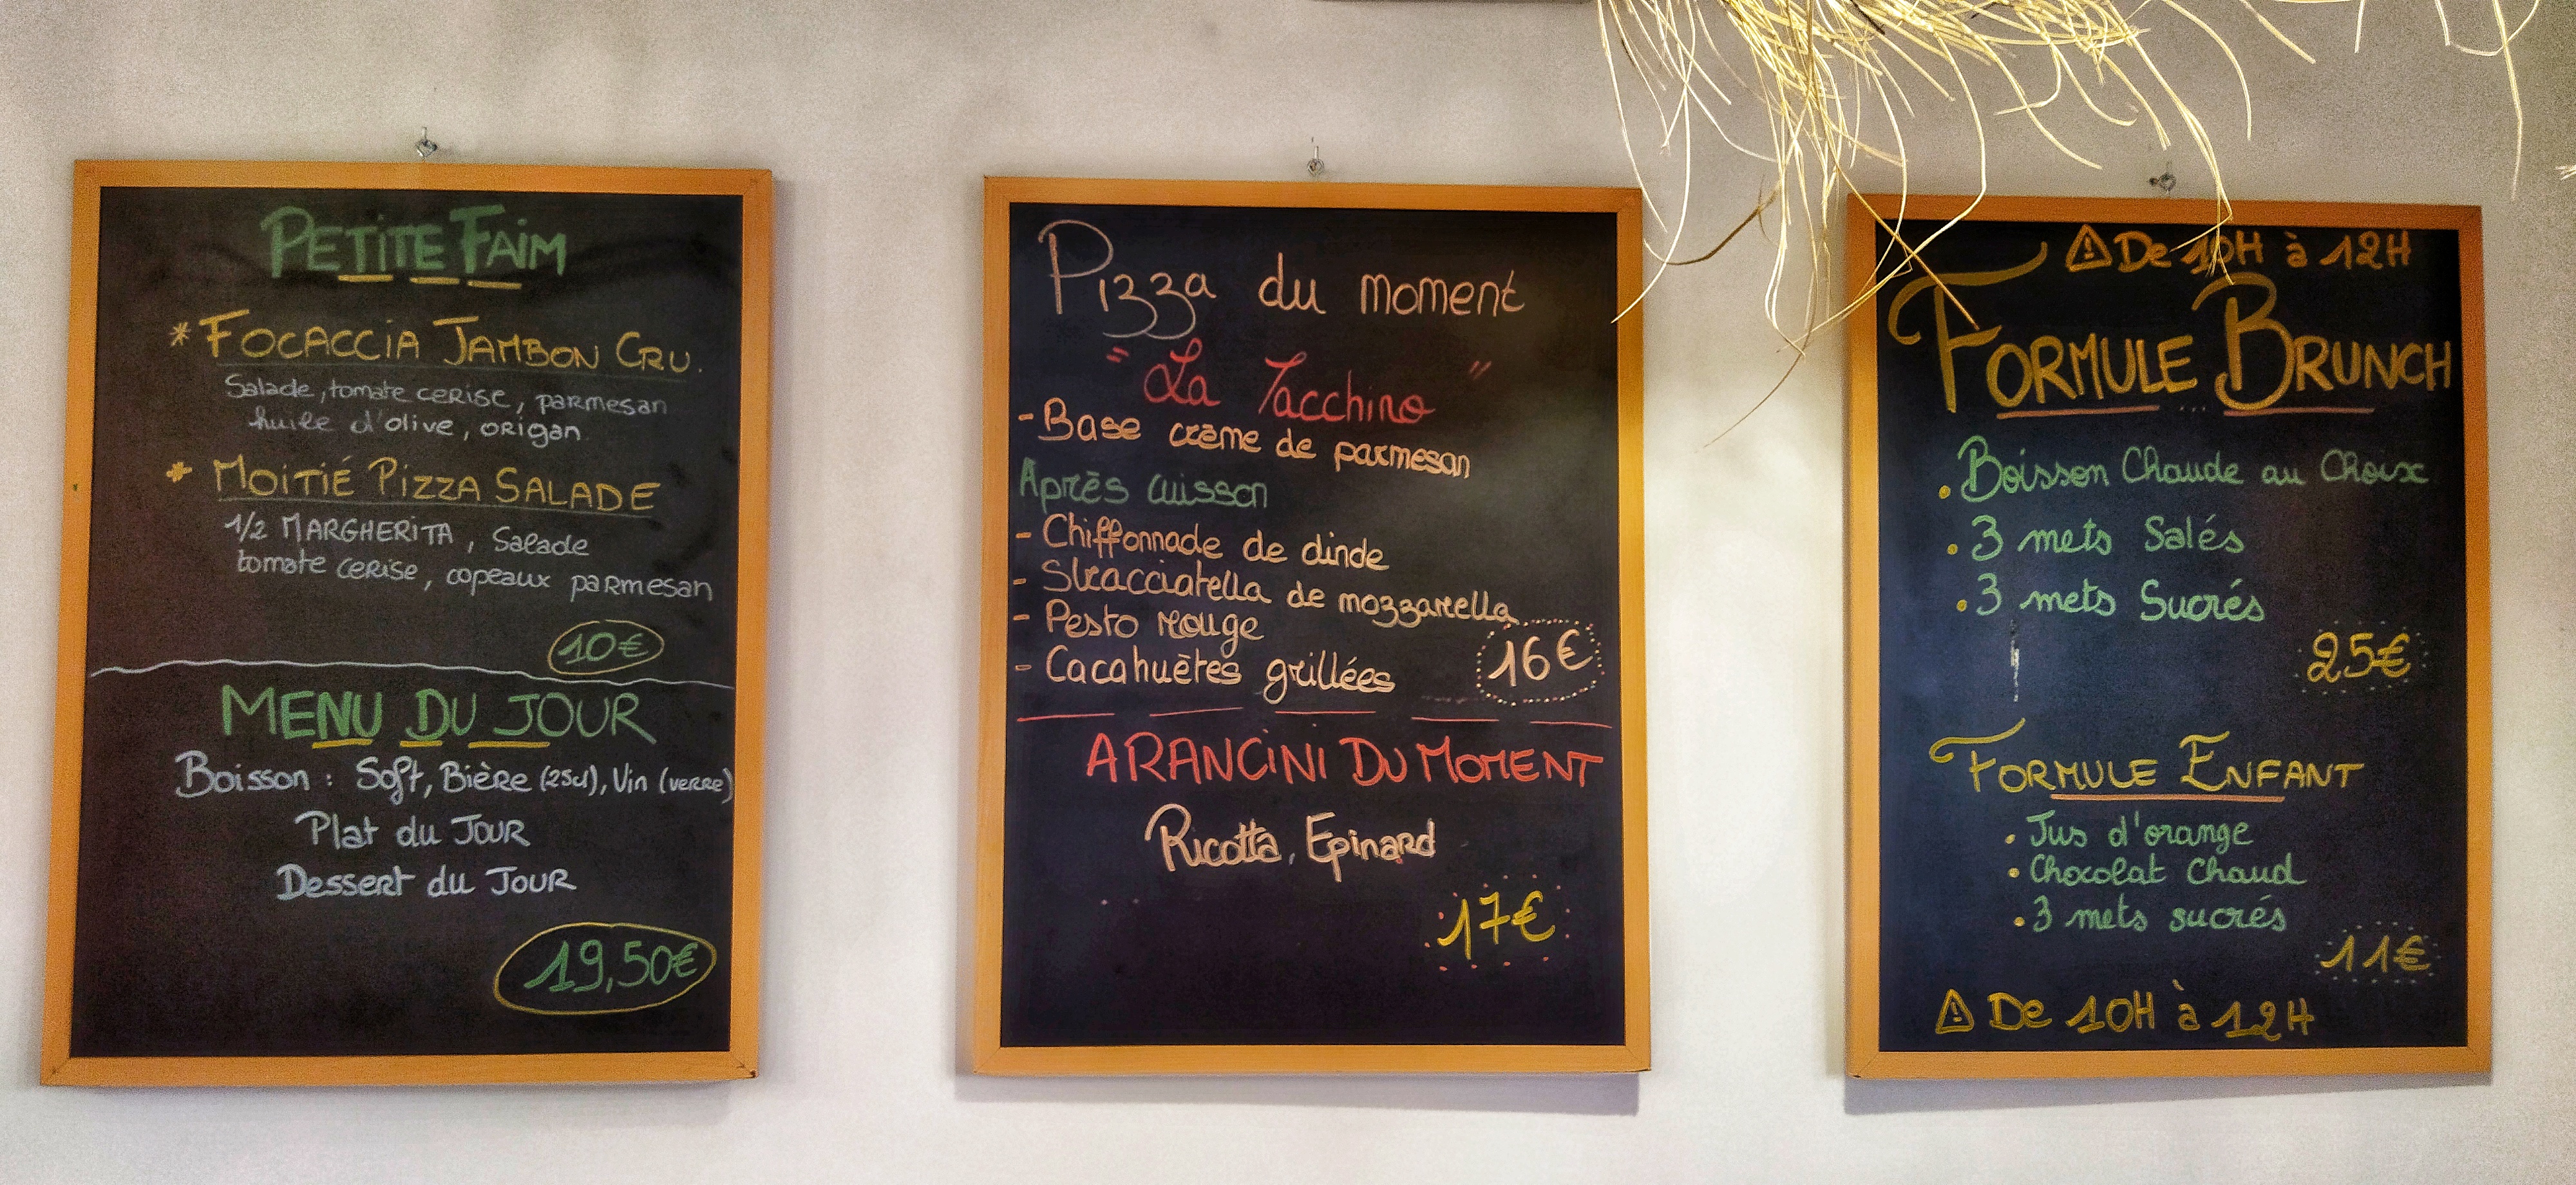 PETITE FAIM
* FOCACCIA JAMBON CRU.
Salade, tomate cerise, parmesan
huile d'olive, origan
* MOITIÉ PIZZA SALADE
1/2 MARGHERITA, Salade
tomate cerise, copeaux parmesan
10€
MENU DU JOUR
Boisson : Soft, Bière (25cl), Vin (verre)
Plat du JOUR
Dessert du JOUR
19,50€
Pizza du moment
"La Tacchino"
- Base crème de parmesan
Après cuisson
- Chiffonnade de dinde
- Stracciatella de mozzarella
- Pesto rouge
- Cacahuètes grillées
16€
ARANCINI DU MOMENT
Ricotta, Epinard
17€
⚠ De 10H à 12H
FORMULE BRUNCH
. Boisson Chaude au Choix
. 3 mets Salés
. 3 mets Sucrés
25€
FORMULE ENFANT
. Jus d'orange
. Chocolat Chaud
. 3 mets sucrés
11€
⚠ De 10H à 12H